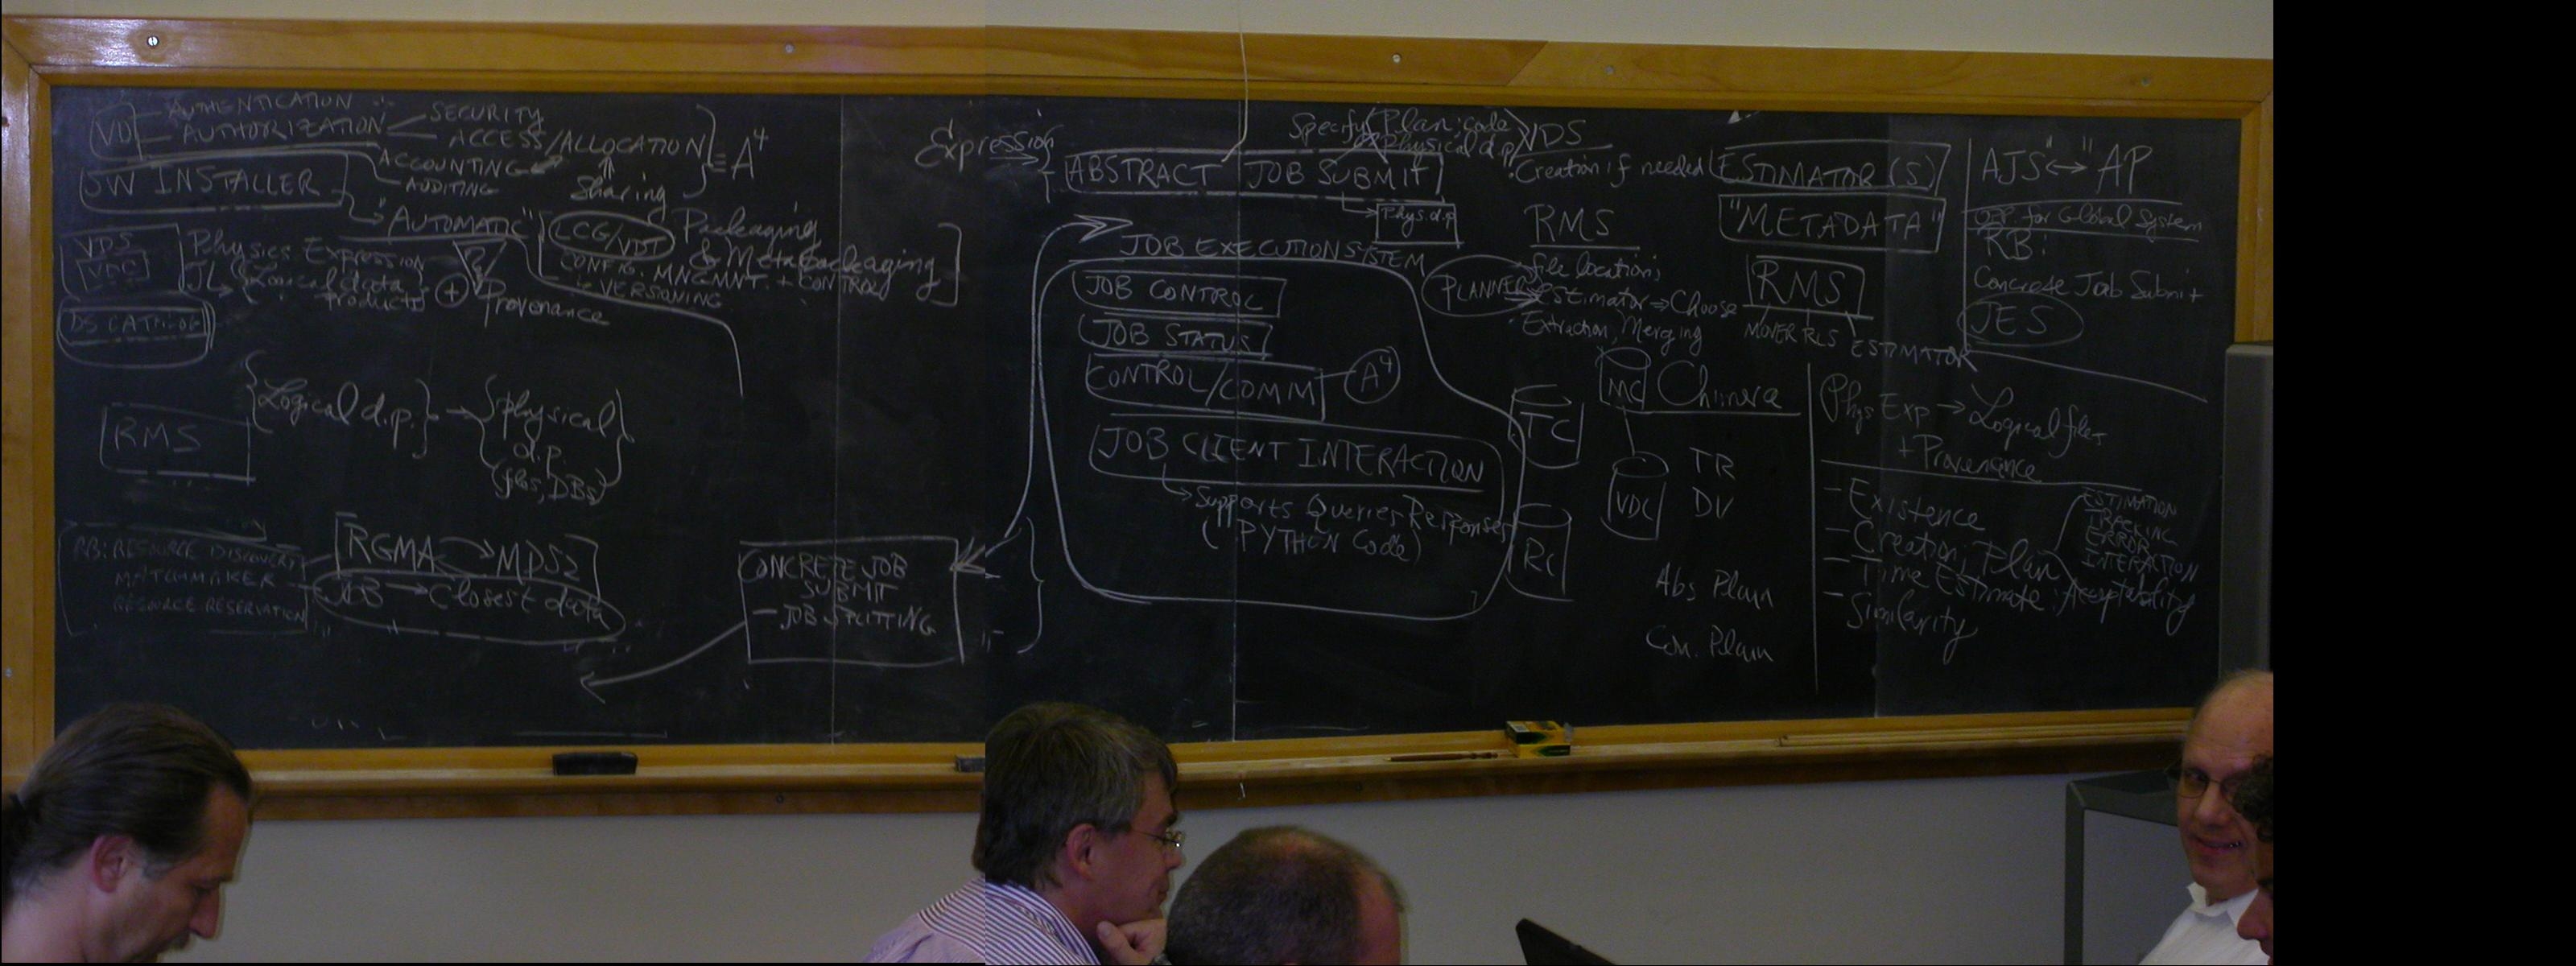 VD
AUTHENTICATION
AUTHORIZATION
SECURITY
ACCESS/ALLOCATION
ACCOUNTING
AUDITING
Sharing
≡ A⁴
SW INSTALLER
"AUTOMATIC"
LCG/VDT
Packaging
& Metapackaging
CONFIG. MNGMNT. + CONTROL
VERSIONING
VDS
VDC
Physics Expression
Logical data
products
+
Provenance
DS CATALOG
RMS
{Logical d.p.} → {physical
d.p.
(files, DBs)}
RB: RESOURCE DISCOVERY
MATCHMAKER
RESOURCE RESERVATION
RGMA → MDS2
JOB → Closest data
CONCRETE JOB
SUBMIT
– JOB SPLITTING
Expression
Specify (Plan; code
physical d.p.)
ABSTRACT JOB SUBMIT
Phys. d.p.
JOB EXECUTION SYSTEM
JOB CONTROL
JOB STATUS
CONTROL/COMM
A⁴
JOB CLIENT INTERACTION
Supports Queries Responses
(PYTHON Code)
VDS
• Creation if needed
RMS
PLANNER
file location;
Estimator ⇒ Choose
• Extraction, Merging
TC
RC
MC
Chimera
VDC
TR
DV
Abs Plan
Con. Plan
ESTIMATOR(S)
"METADATA"
RMS
MOVER RLS ESTIMATOR
AJS ↔ "AP"
for Global System
RB:
Concrete Job Submit
JES
Phys Exp → Logical files
+ Provenance
– Existence
– Creation; Plan
– Time Estimate: Acceptability
– Similarity
ESTIMATION
TRACKING
ERROR
INTERACTION